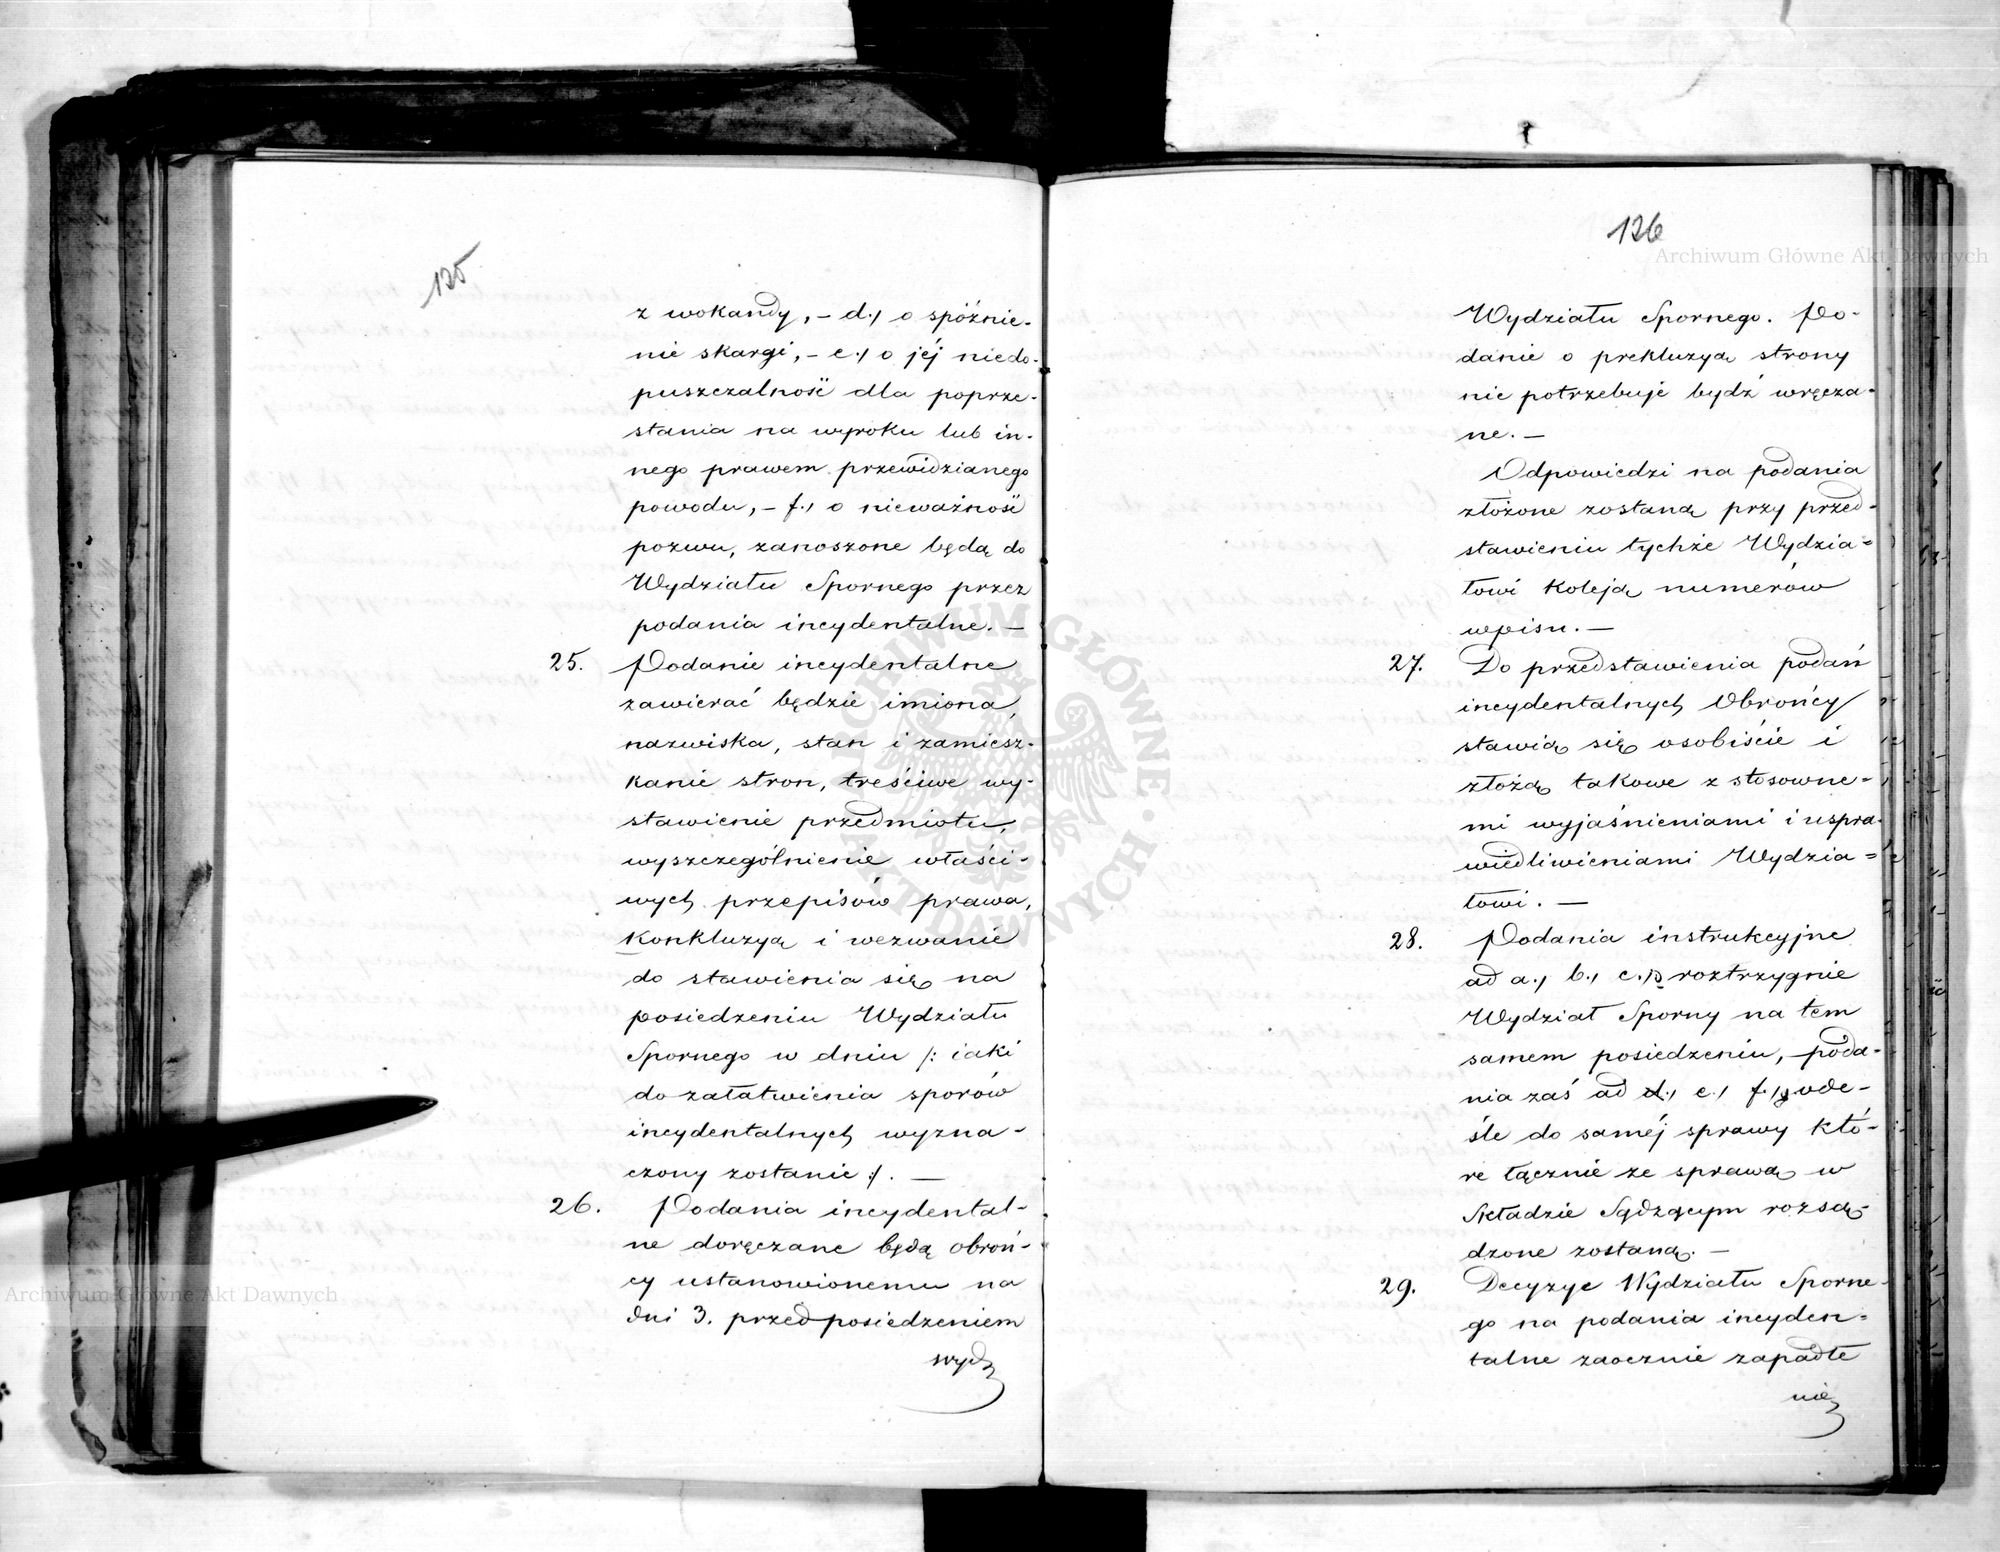 125
z wokandy, – d.) o spóźnie-
nie skargi, – e.) o jéj niedo-
puszczalność dla poprze-
stania na wyroku lub in-
nego prawem przewidzianego
powodu, – f.) o nieważność
pozwu, zanoszone będą do
Wydziału Spornego przez
podania incydentalne. —
25. Podanie incydentalne
zawierać będzie imiona,
nazwiska, stan i zamiesz-
kanie stron, treściwe wy-
stawienie przedmiotu,
wyszczególnienie właści-
wych przepisów prawa,
Konkluzyą i wezwanie
do stawienia się na
posiedzeniu Wydziału
Spornego w dniu /: iaki
do załatwienia sporów
incydentalnych wyzna-
czony zostanie :/. —
26. Podania incydental-
ne doręczane będą obroń-
cy ustanowionemu na
dni 3. przed posiedzeniem
Wydz
126
Wydziału Spornego. Po-
danie o prekluzyą strony
nie potrzebuje bydź wręcza-
ne. —
Odpowiedzi na podania
złożone zostaną przy przed-
stawieniu tychże Wydzia=
łowi koleją numerów
wpisu. —
27. Do przedstawienia podań
incydentalnych Obrońcy
stawią się osobiście i
złożą takowe z stosowne=
mi wyjaśnieniami i uspra-
wiedliwieniami Wydzia=
łowi. —
28. Podania instrukcyjne
ad a.) b.) c.) roztrzygnie
Wydział Sporny na tem
samem posiedzeniu, – poda-
nia zaś ad d.) e.) f.) ode-
śle do saméj sprawy któ-
re łącznie ze sprawą w
Składzie Sądzącym rozsą-
dzone zostaną. —
29. Decyzye Wydziału Sporne-
go na podania incyden=
talne zaocznie zapadłe
nie
ARCHIWUM GŁÓWNE AKT DAWNYCH
Archiwum Główne Akt Dawnych
Archiwum Główne Akt Dawnych